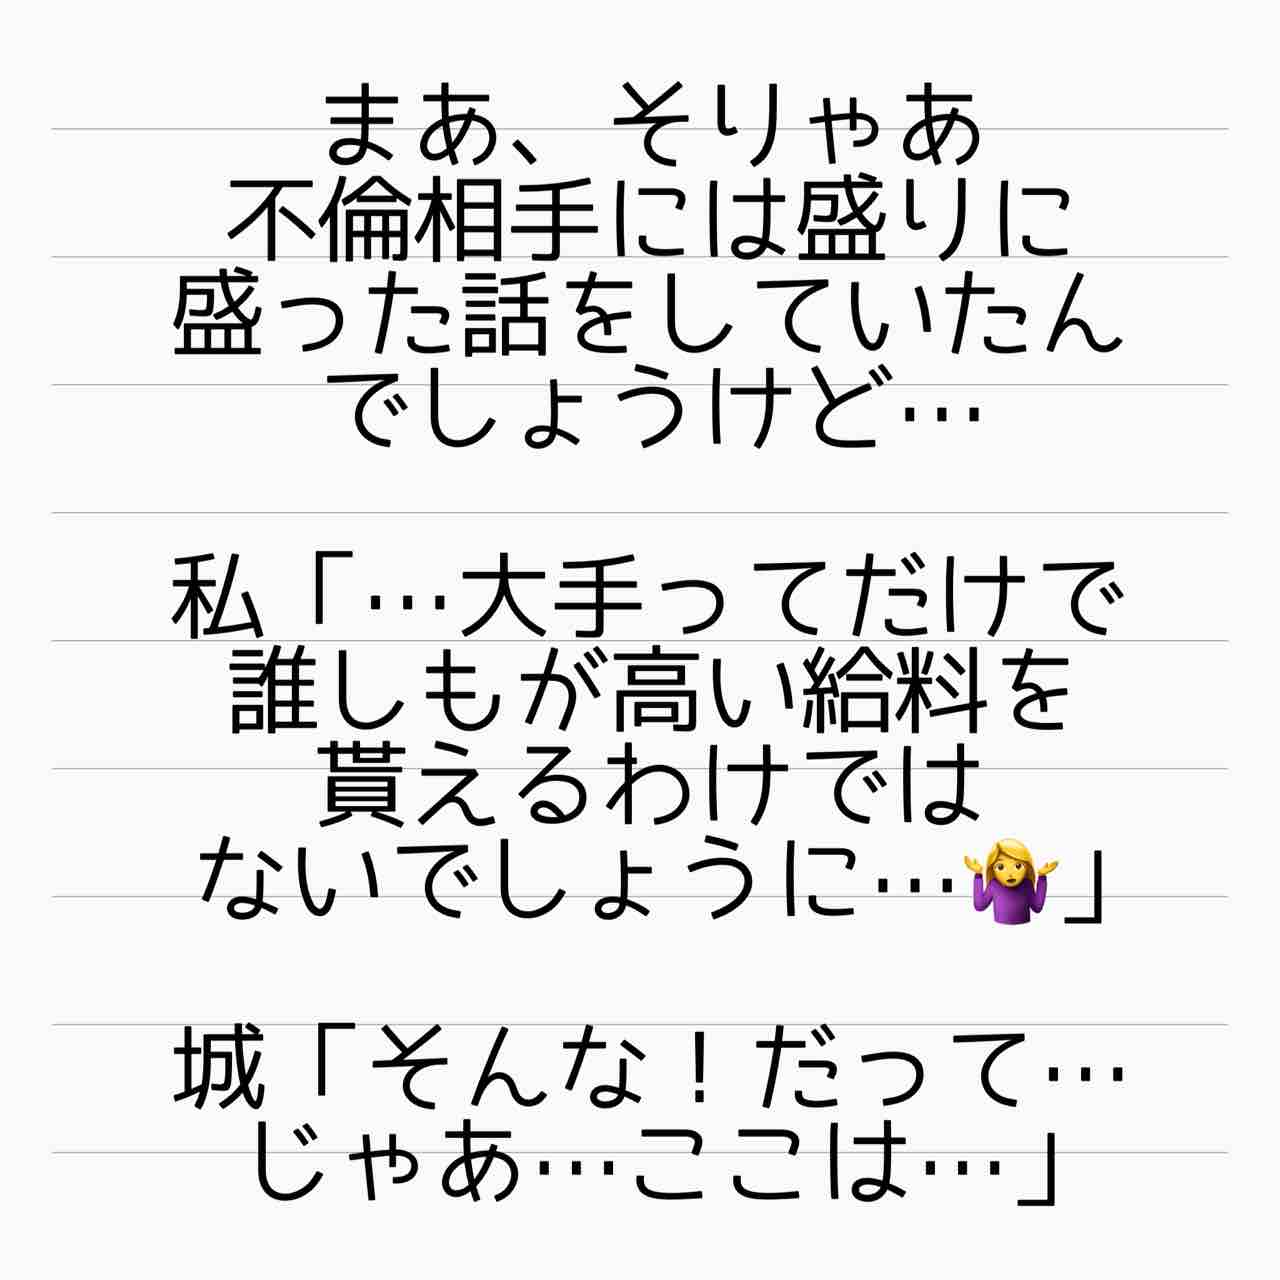 まあ、そりゃあ
不倫相手には盛りに
盛った話をしていたん
でしょうけど…
私「…大手ってだけで
誰しもが高い給料を
貰えるわけでは
ないでしょうに…🤷‍♀️」
城「そんな！だって…
じゃあ…ここは…」